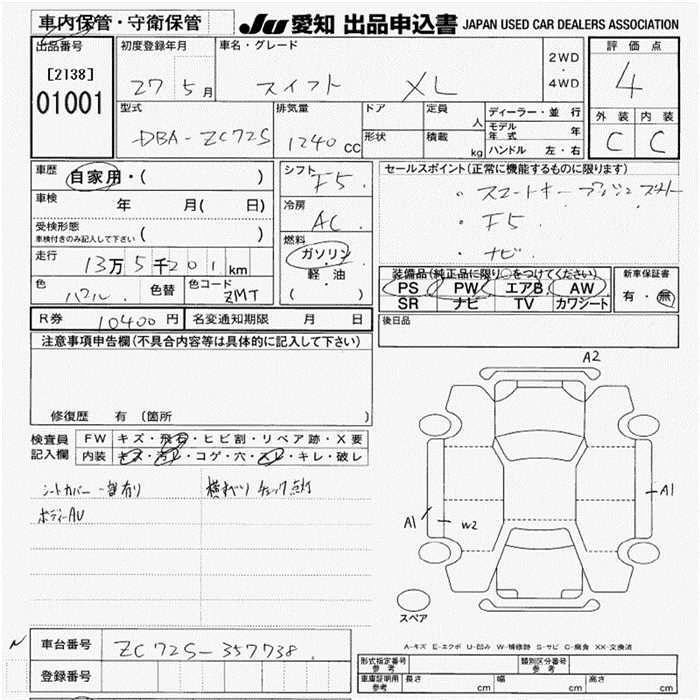 車内保管・守衛保管 JU愛知 出品申込書 JAPAN USED CAR DEALERS ASSOCIATION
出品番号 初度登録年月 車名・グレード 評価点
[2138] 27 5月 スイフト XL 2WD・4WD 4
01001 型式 排気量 ドア 定員 人 ディーラー・並行 外装 内装
形状 積載 kg モデル年式 年
DBA-ZC72S 1240cc ハンドル 左・右 C C
車歴 自家用・( ) シフト F5 セールスポイント(正常に機能するものに限ります)
車検 年 月( 日) 冷房 AC ・スマートキー プッシュスタート
受検形態 ( ) ・F5
車検付きのみ記入して下さい 燃料 ・ナビ
走行 13万5千201km ガソリン 装備品(純正品に限り○をつけてください) 新車保証書
軽・油 PS PW エアB AW 有・無
色 パール 色替 色コード ZMT ( ) SR ナビ TV カワシート
R券 10400円 名変通知期限 月 日 後日品
注意事項申告欄(不具合内容等は具体的に記入して下さい)
A2
修復歴 有 (箇所 )
検査員 FW キズ・飛石・ヒビ割・リペア跡・X要
記入欄 内装 キズ・汚レ・コゲ・穴・スレ・キレ・破レ
シートカバー一部有り 横すべりチェック点灯
A1
ボディーAU
A1 W2
スペア
車台番号 ZC72S-357738
A-キズ E-エクボ U-凹み W-補修跡 S-サビ C-腐食 XX-交換済
登録番号 形式指定番号 参考 類別区分番号 参考
車庫証明用 参考 長さ cm 幅 cm 高さ cm